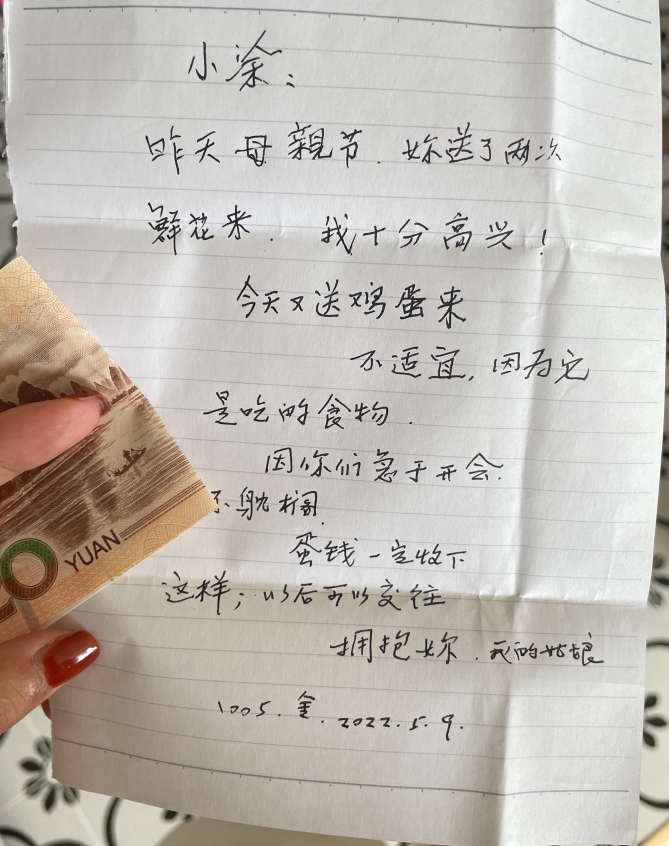 小涂：
昨天母親节.妳送了两次
鲜花来.我十分高兴！
今天又送鸡蛋来
不适宜,因为它
是吃的食物.
因你们急于开会.
不躭搁.
蛋钱一定收下
这样；以后可以交往
拥抱妳.我的姑娘
1005.金.2022.5.9.
YUAN